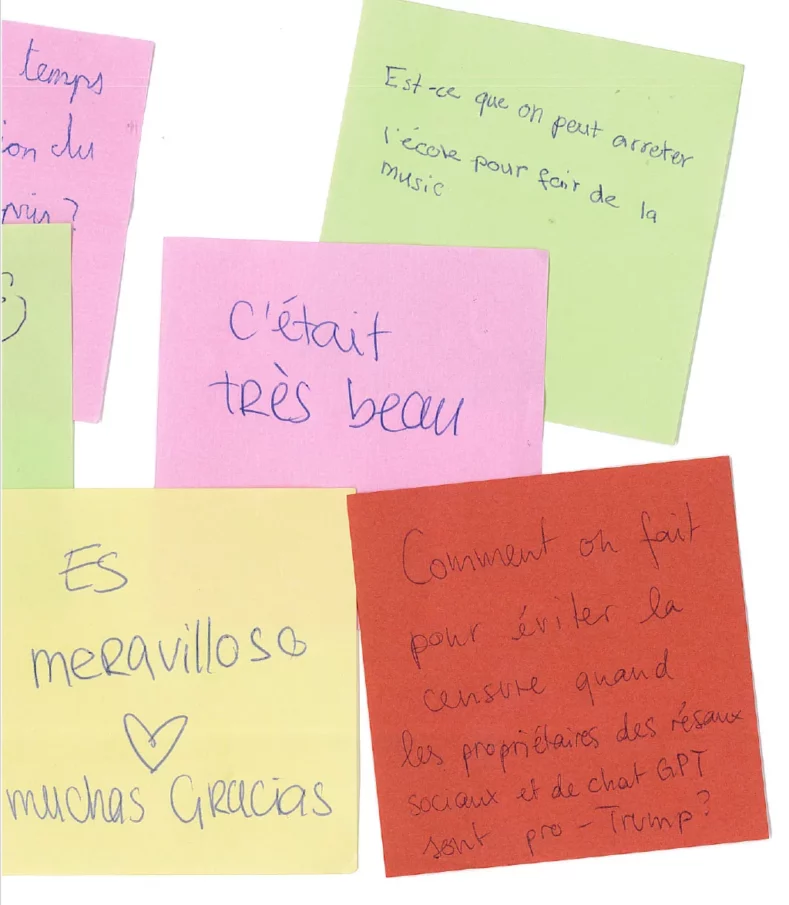 temps
ion du
?
Est-ce que on peut arreter
l'école pour fair de la
music
C'était
tRès beau
ES
meRavilloso
muchas GRacias
Comment on fait
pour éviter la
censure quand
les propriétaires des résaux
sociaux et de chat GPT
sont pro-Trump?